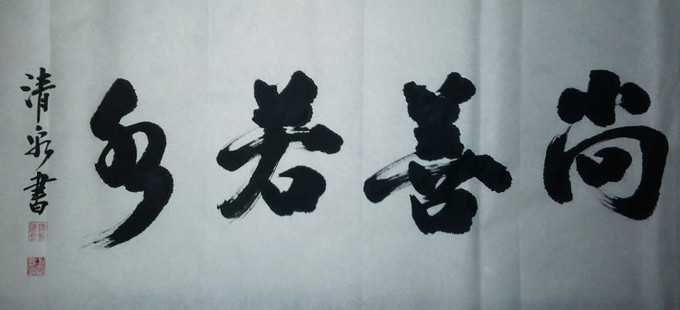 尚善若水
清泉書